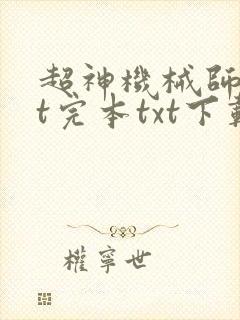 超神機械師
t完本txt下載
權寧世